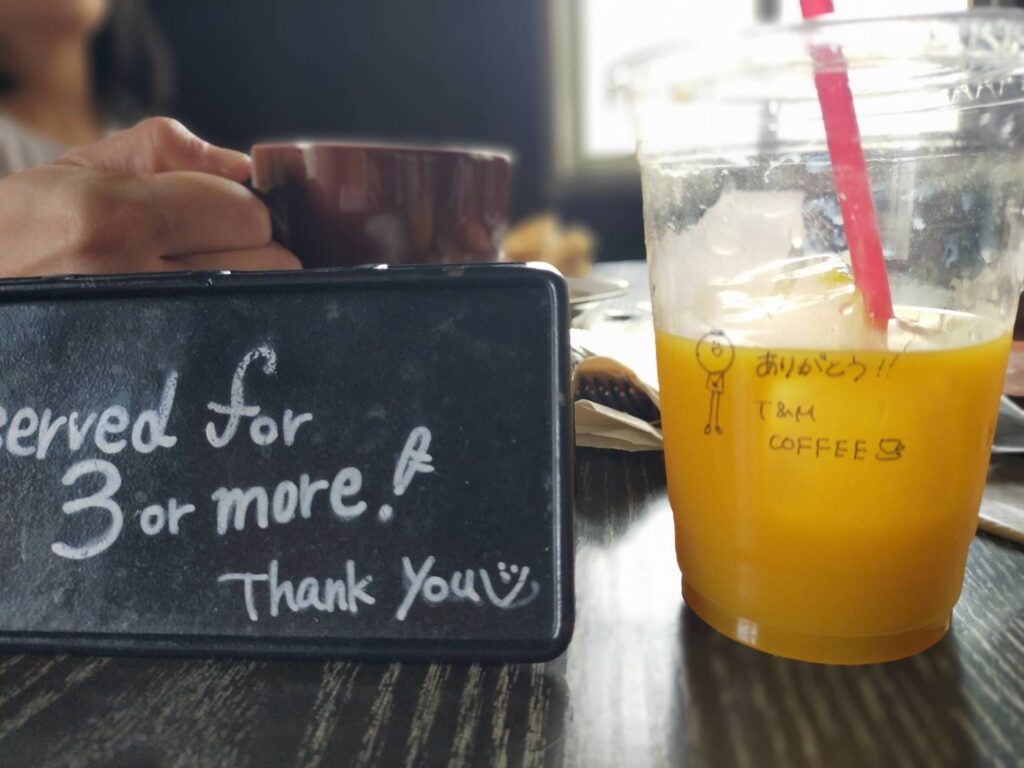 served for
3 or more!
Thank You
ありがとう!!
T&M
COFFEE